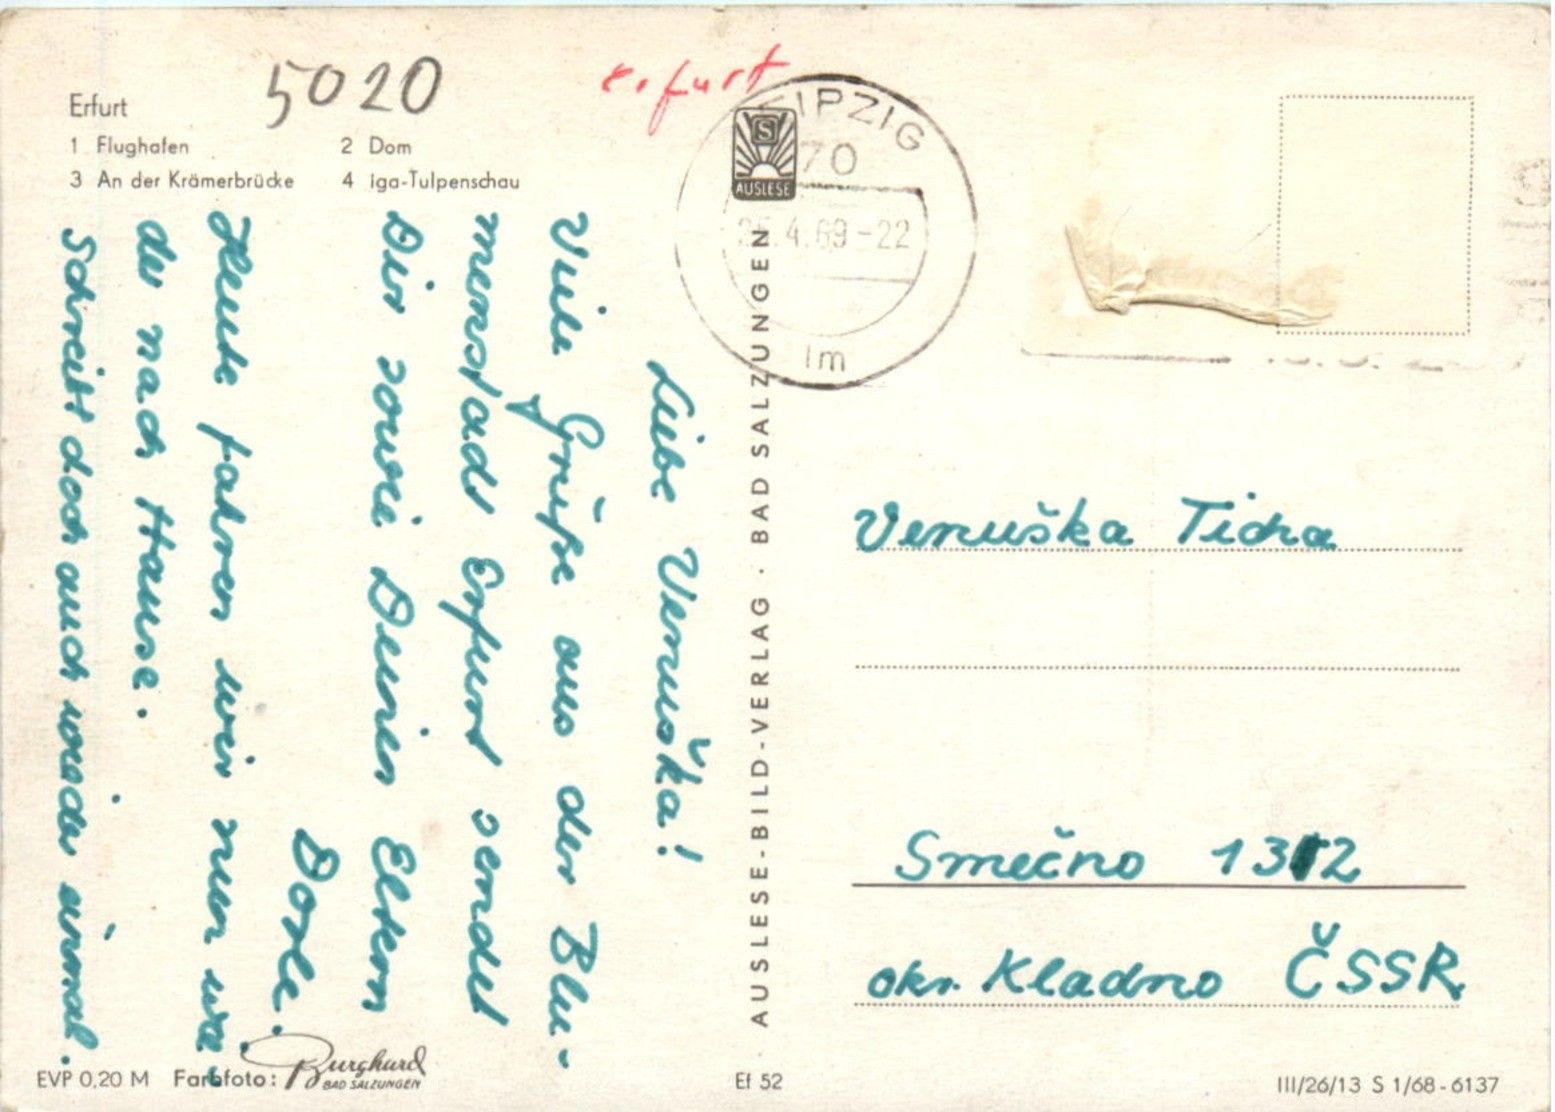 Erfurt
1 Flughafen 2 Dom
3 An der Krämerbrücke 4 iga-Tulpenschau
5020
erfurt
LEIPZIG
70
4.69-22
lm
S
AUSLESE
Liebe Venuška!
Viele Grüße aus der Blu-
menstadt Erfurt sendet
Dir sowie Deinen Eltern
Dorle.
Heute fahren wir nun wie-
der nach Hause.
Schreibt doch auch wieder einmal.
AUSLESE-BILD-VERLAG · BAD SALZUNGEN
Venuška Ticha
Smečno 1312
okr. Kladno ČSSR
EVP 0,20 M Farbfoto: Burghard
BAD SALZUNGEN
Ef 52
III/26/13 S 1/68-6137